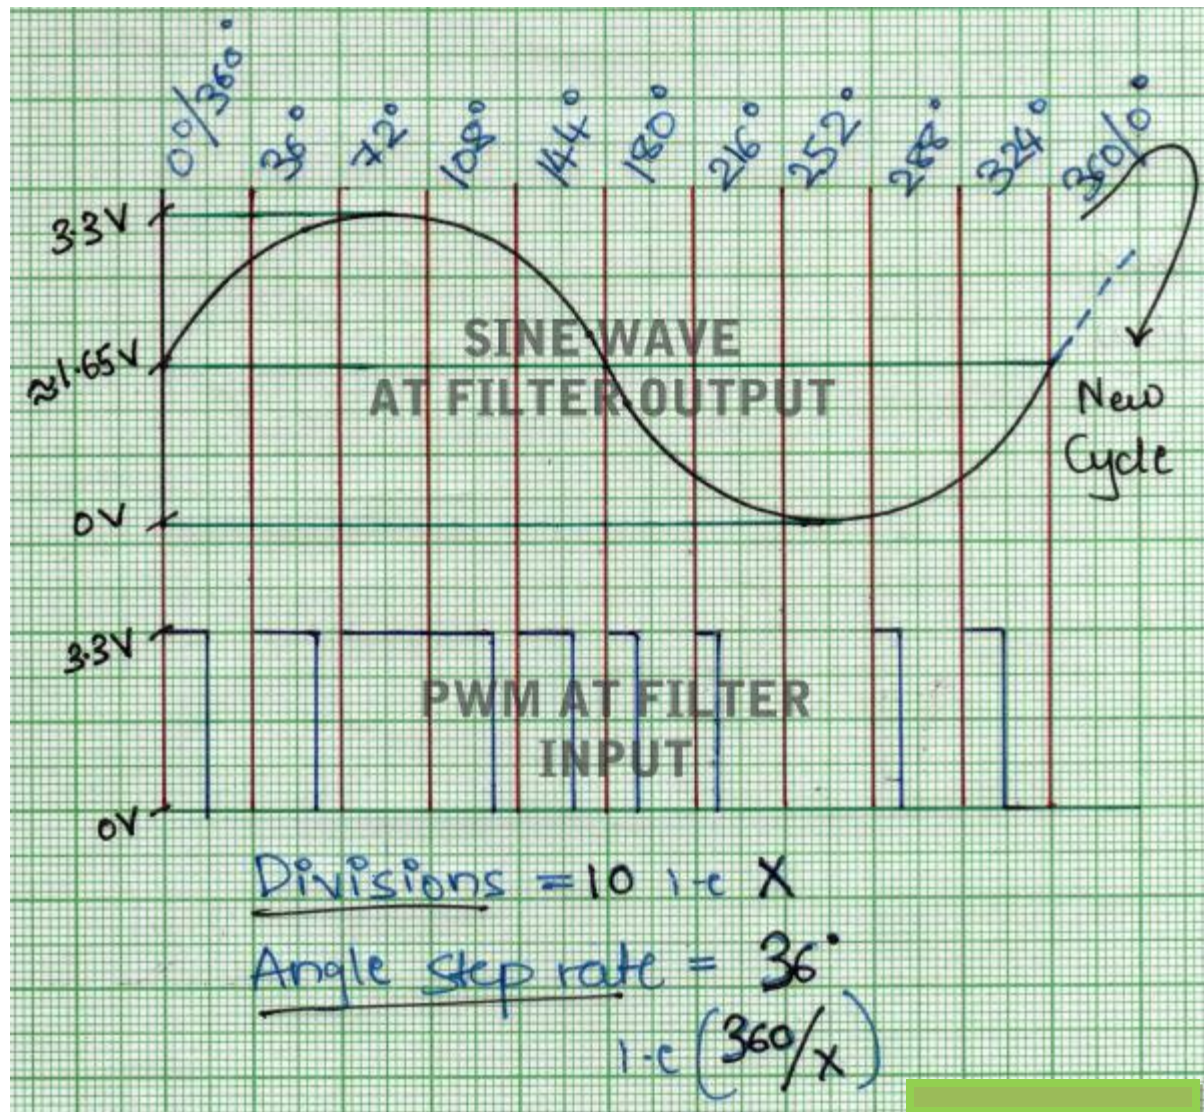 0°/360°
36°
72°
108°
144°
180°
216°
252°
288°
324°
360/0°
3.3V
≈1.65V
0V
SINE WAVE
AT FILTER OUTPUT
New
Cycle
3.3V
0V
PWM AT FILTER
INPUT
Divisions = 10 i-e X
Angle step rate = 36°
i-e (360/x)